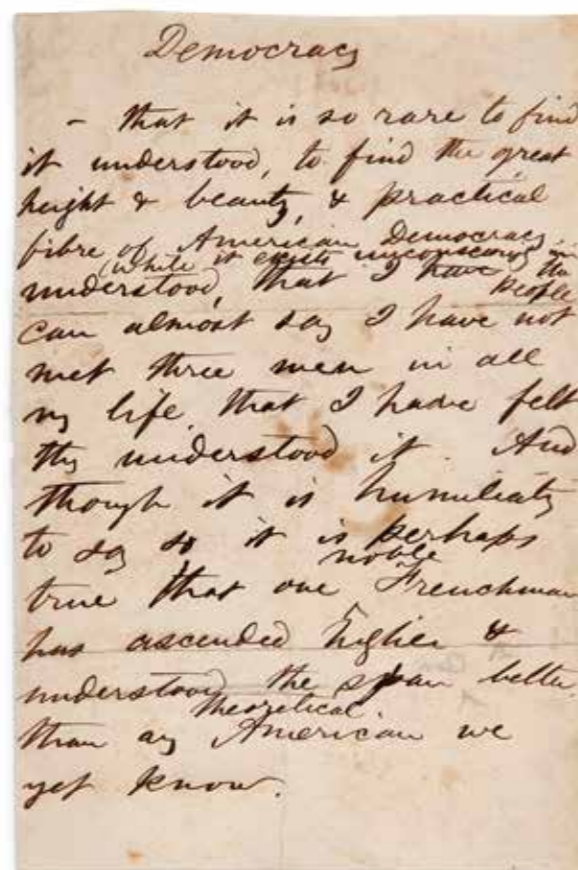 Democracy
- that it is so rare to find
it understood, to find the great
height & beauty, & practical
fibre of American Democracy
(while it exists unconsciously in the
understood, that I have people
can almost say I have not
met three men in all
my life that I have felt
they understood it. And
though it is humiliating
to say so it is perhaps
noble
true that one Frenchman
has ascended higher &
understood the span better
theoretical
than any American we
yet know.